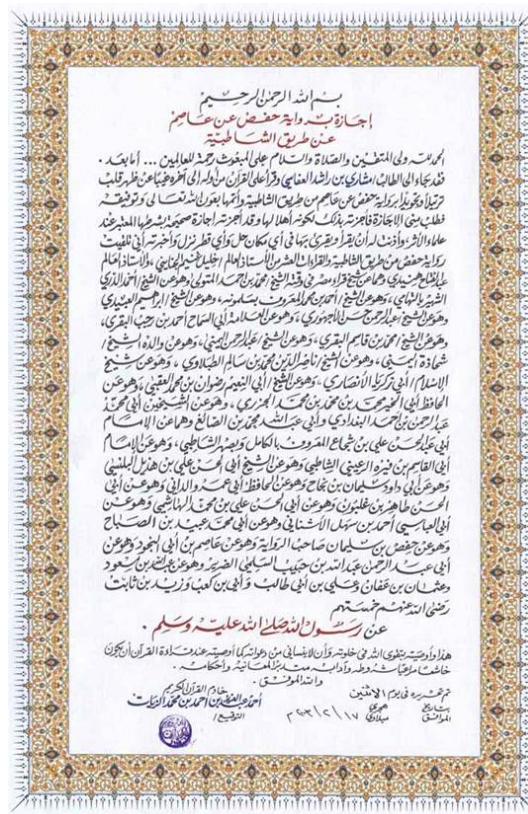 بسم الله الرحمن الرحيم
إجازة برواية حفص عن عاصم
عن طريق الشاطبية
الحمد لله ولى المتقين والصلاة والسلام على المبعوث رحمة للعالمين ... أما بعد .
فقد جاء إلى الطالب / مشارى بن راشد العفاسى وقرأ على القرآن من أوله إلى آخره غيبا عن ظهر قلب
ترتيلا وتجويدا برواية حفص عن عاصم من طريق الشاطبية وأتمها بعون الله تعالى وتوفيقه
فطلب منى الإجازة فأجزته بذلك لكونه أهلا لها وقد أجزته إجازة صحيحة بشرطها المعتبر عند
علماء الأثر وأذنت له أن يقرأ ويقرئ بها فى أى مكان حل وأى قطر نزل وأخبرته أنى تلقيت
رواية حفص من طريق الشاطبية والقراءات العشر من الأستاذ العالم / خليل الجناينى ، والأستاذ العالم
عبد الفتاح هنيدى وهما عن شيخ قراء مصر فى وقته الشيخ / محمد بن أحمد المتولى وهو عن الشيخ / أحمد الدرى
الشهير بالتهامى ، وهو عن الشيخ / أحمد بن محمد المعروف بسلمونه ، وهو عن الشيخ / إبراهيم العبيدى
وهو عن الشيخ / عبد الرحمن بن حسن الأجهورى ، وهو عن العلامة أبى السماح أحمد بن رجب البقرى ،
وهو عن الشيخ / محمد بن قاسم البقرى ، وهو عن الشيخ / عبد الرحمن اليمنى ، وهو عن والده الشيخ /
شحاذة اليمنى ، وهو عن الشيخ / ناصر الدين محمد بن سالم الطبلاوى ، وهو عن شيخ
الإسلام / أبى زكريا الأنصارى ، وهو عن الشيخ / أبى النعيم رضوان بن محمد العقبى ، وهو عن
الحافظ أبى الخير محمد بن محمد بن محمد الجزرى ، وهو عن الشيخين أبى محمد
عبد الرحمن بن أحمد البغدادى وأبى عبد الله محمد بن الصائغ وهما عن الإمام
أبى عبد الحسن على بن شجاع المعروف بالكامل وبصهر الشاطبى ، وهو عن الإمام
أبى القاسم بن فيره الرعينى الشاطبى وهو عن الشيخ أبى الحسن على بن هذيل البلنسى
وهو عن أبى داود سليمان بن نجاح وهو عن الحافظ أبى عمرو الدانى وهو عن أبى
الحسن طاهر بن غلبون وهو عن أبى الحسن على بن محمد الهاشمى وهو عن
أبى العباس أحمد بن سهل الأشنانى وهو عن أبى محمد عبيد بن الصباح
وهو عن حفص بن سليمان صاحب الرواية وهو عن عاصم بن أبى النجود وهو عن
أبى عبد الرحمن عبد الله بن حبيب السلمى الضرير وهو عن عبد الله بن مسعود
وعثمان بن عفان وعلى بن أبى طالب وأبى بن كعب وزيد بن ثابت
رضى الله عنهم خمستهم
عن رسول الله صلى الله عليه وسلم .
هذا وأوصيته بتقوى الله فى خلوته وأن لا ينسانى من دعواته كما أوصيته عند قراءة القرآن أن يكون
خاشعا مراعيا شروطه وآدابه متدبرا لمعانيه وأحكامه .
والله الموفق .
تم تحريره فى يوم الاثنين
خادم القرآن الكريم
بتاريخ هجرى
أحمد عبد العزيز بن أحمد بن محمد الزيات
الموافق ميلادى ١٧ / ٢ / ٢٠٠٣
التوقيع /